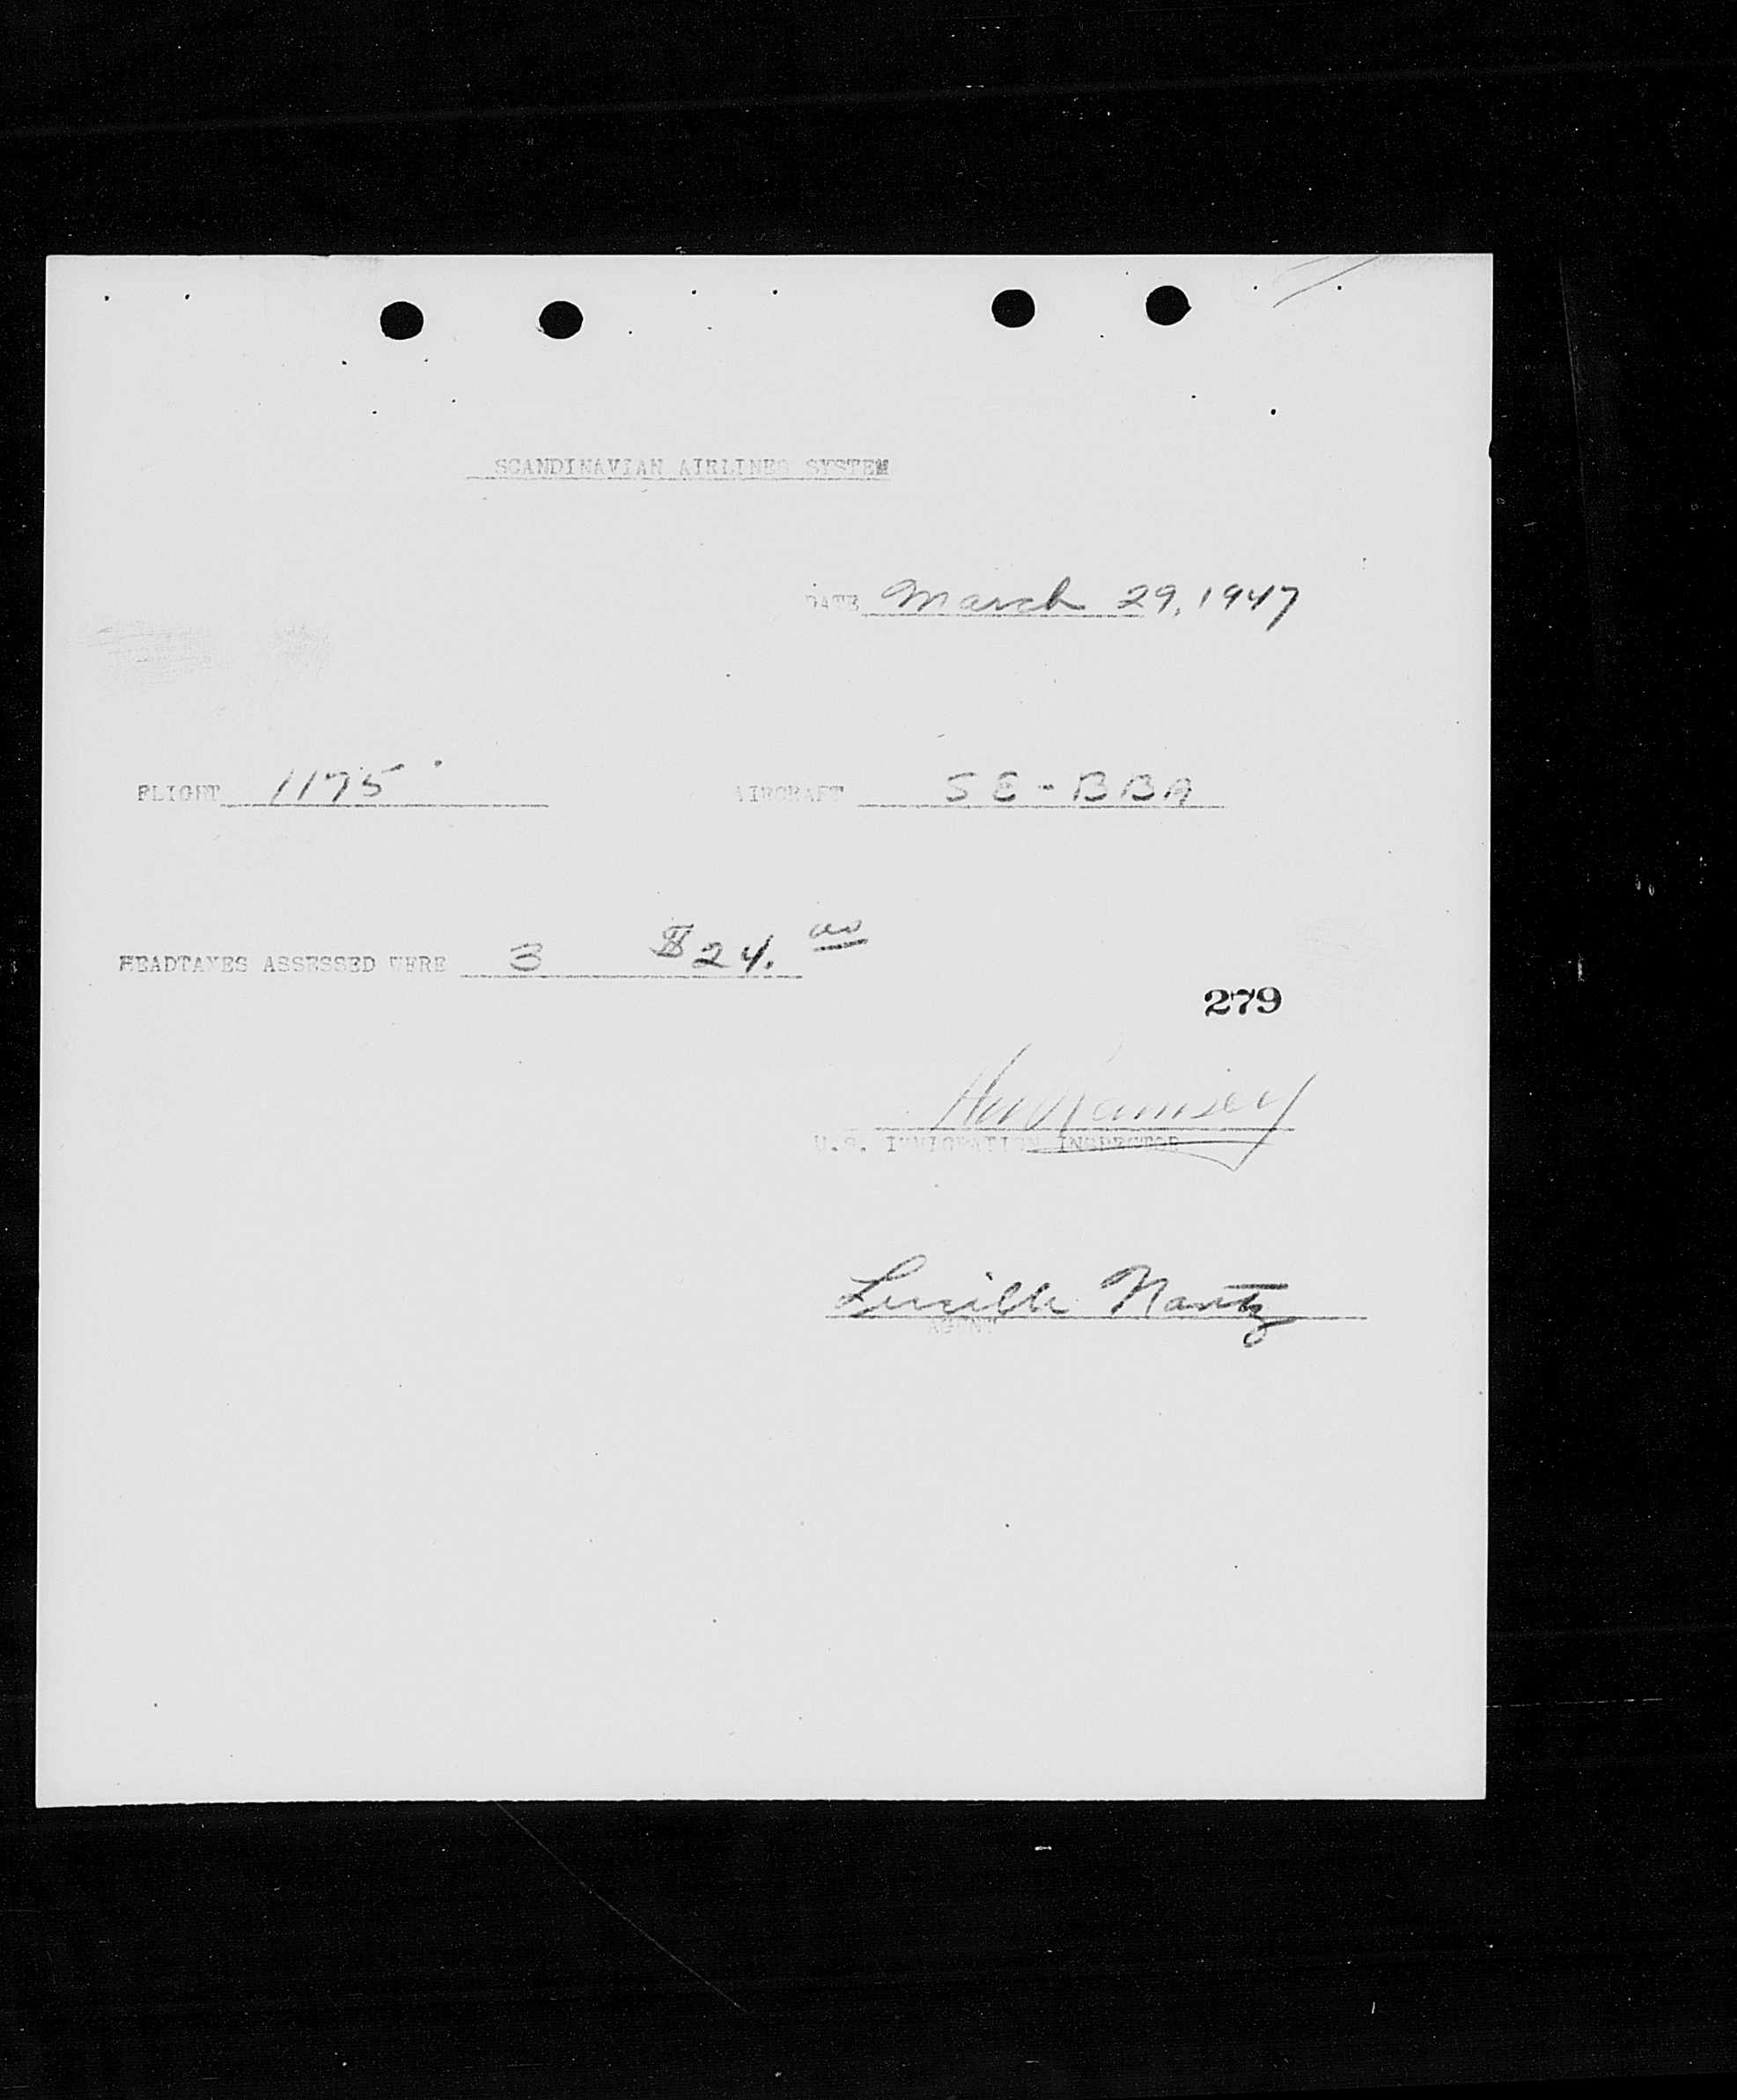 SCANDINAVIAN AIRLINES SYSTEM
DATE March 29, 1947
FLIGHT 1175 AIRCRAFT SE-BBA
HEADTAXES ASSESSED WERE 3 $24.00
279
Ramsey
U.S. IMMIGRATION INSPECTOR
Lucille Nantz
AGENT